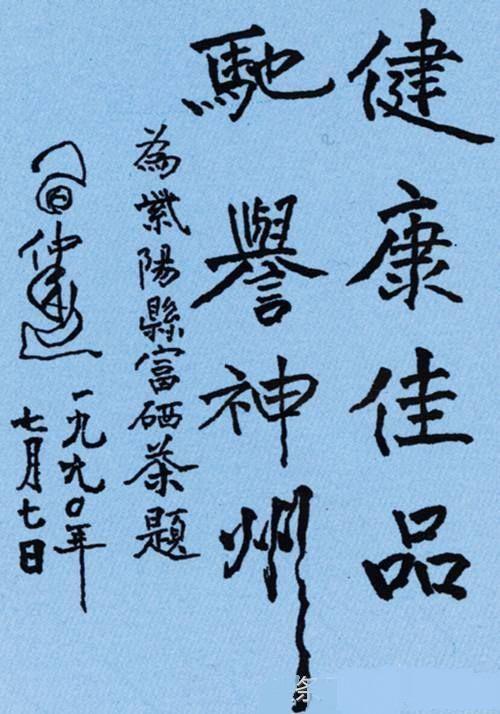 健康佳品
馳譽神州
為紫陽縣富硒茶題
仲
一九九〇年
七月七日
条